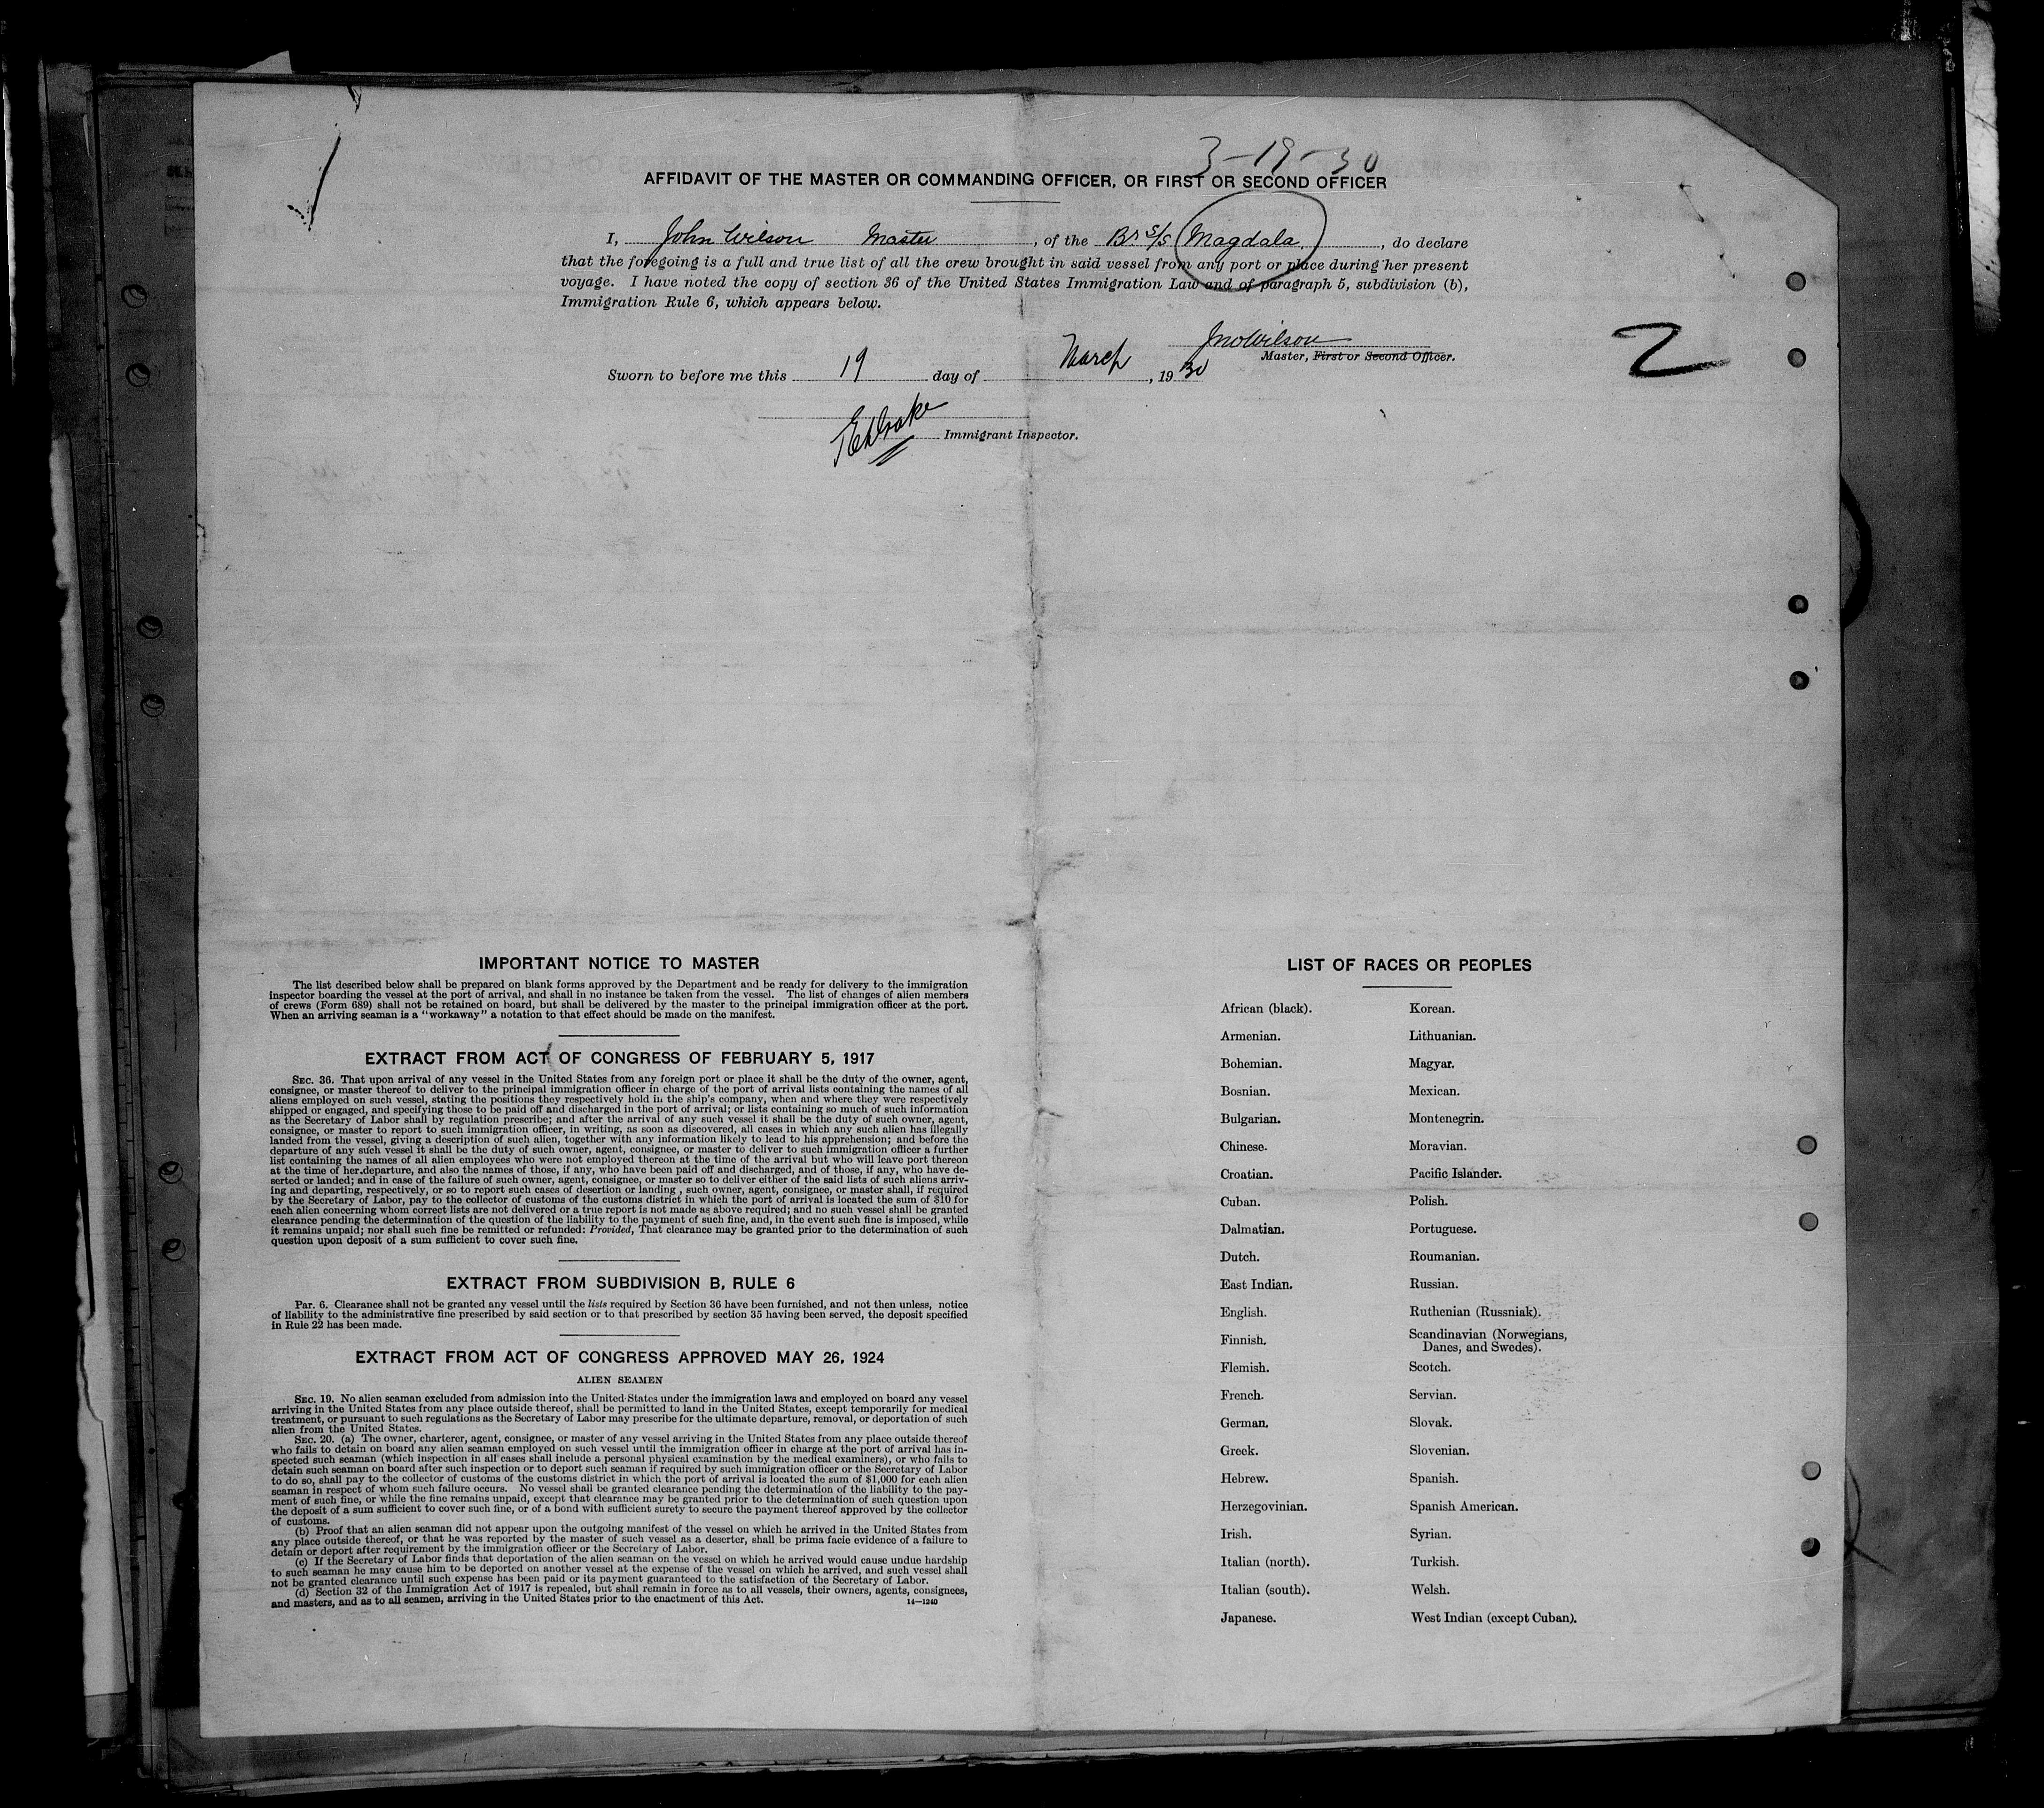 3-19-30
AFFIDAVIT OF THE MASTER OR COMMANDING OFFICER, OR FIRST OR SECOND OFFICER
I, John Wilson Master, of the Br S/S Magdala, do declare
that the foregoing is a full and true list of all the crew brought in said vessel from any port or place during her present
voyage. I have noted the copy of section 36 of the United States Immigration Law and of paragraph 5, subdivision (b),
Immigration Rule 6, which appears below.
Jno Wilson
Master, First or Second Officer.
2
Sworn to before me this 19 day of March, 1930
Drake
Immigrant Inspector.
IMPORTANT NOTICE TO MASTER
The list described below shall be prepared on blank forms approved by the Department and be ready for delivery to the immigration
inspector boarding the vessel at the port of arrival, and shall in no instance be taken from the vessel. The list of changes of alien members
of crews (Form 689) shall not be retained on board, but shall be delivered by the master to the principal immigration officer at the port.
When an arriving seaman is a "workaway" a notation to that effect should be made on the manifest.
EXTRACT FROM ACT OF CONGRESS OF FEBRUARY 5, 1917
SEC. 36. That upon arrival of any vessel in the United States from any foreign port or place it shall be the duty of the owner, agent,
consignee, or master thereof to deliver to the principal immigration officer in charge of the port of arrival lists containing the names of all
aliens employed on such vessel, stating the positions they respectively hold in the ship's company, when and where they were respectively
shipped or engaged, and specifying those to be paid off and discharged in the port of arrival; or lists containing so much of such information
as the Secretary of Labor shall by regulation prescribe; and after the arrival of any such vessel it shall be the duty of such owner, agent,
consignee, or master to report to such immigration officer, in writing, as soon as discovered, all cases in which any such alien has illegally
landed from the vessel, giving a description of such alien, together with any information likely to lead to his apprehension; and before the
departure of any such vessel it shall be the duty of such owner, agent, consignee, or master to deliver to such immigration officer a further
list containing the names of all alien employees who were not employed thereon at the time of the arrival but who will leave port thereon
at the time of her departure, and also the names of those, if any, who have been paid off and discharged, and of those, if any, who have de-
serted or landed; and in case of the failure of such owner, agent, consignee, or master so to deliver either of the said lists of such aliens arriv-
ing and departing, respectively, or so to report such cases of desertion or landing , such owner, agent, consignee, or master shall, if required
by the Secretary of Labor, pay to the collector of customs of the customs district in which the port of arrival is located the sum of $10 for
each alien concerning whom correct lists are not delivered or a true report is not made as above required; and no such vessel shall be granted
clearance pending the determination of the question of the liability to the payment of such fine, and, in the event such fine is imposed, while
it remains unpaid; nor shall such fine be remitted or refunded: Provided, That clearance may be granted prior to the determination of such
question upon deposit of a sum sufficient to cover such fine.
EXTRACT FROM SUBDIVISION B, RULE 6
PAR. 6. Clearance shall not be granted any vessel until the lists required by Section 36 have been furnished, and not then unless, notice
of liability to the administrative fine prescribed by said section or to that prescribed by section 35 having been served, the deposit specified
in Rule 22 has been made.
EXTRACT FROM ACT OF CONGRESS APPROVED MAY 26, 1924
ALIEN SEAMEN
SEC. 19. No alien seaman excluded from admission into the United States under the immigration laws and employed on board any vessel
arriving in the United States from any place outside thereof, shall be permitted to land in the United States, except temporarily for medical
treatment, or pursuant to such regulations as the Secretary of Labor may prescribe for the ultimate departure, removal, or deportation of such
alien from the United States.
SEC. 20. (a) The owner, charterer, agent, consignee, or master of any vessel arriving in the United States from any place outside thereof
who fails to detain on board any alien seaman employed on such vessel until the immigration officer in charge at the port of arrival has in-
spected such seaman (which inspection in all cases shall include a personal physical examination by the medical examiners), or who fails to
detain such seaman on board after such inspection or to deport such seaman if required by such immigration officer or the Secretary of Labor
to do so, shall pay to the collector of customs of the customs district in which the port of arrival is located the sum of $1,000 for each alien
seaman in respect of whom such failure occurs. No vessel shall be granted clearance pending the determination of the liability to the pay-
ment of such fine, or while the fine remains unpaid, except that clearance may be granted prior to the determination of such question upon
the deposit of a sum sufficient to cover such fine, or of a bond with sufficient surety to secure the payment thereof approved by the collector
of customs.
(b) Proof that an alien seaman did not appear upon the outgoing manifest of the vessel on which he arrived in the United States from
any place outside thereof, or that he was reported by the master of such vessel as a deserter, shall be prima facie evidence of a failure to
detain or deport after requirement by the immigration officer or the Secretary of Labor.
(c) If the Secretary of Labor finds that deportation of the alien seaman on the vessel on which he arrived would cause undue hardship
to such seaman he may cause him to be deported on another vessel at the expense of the vessel on which he arrived, and such vessel shall
not be granted clearance until such expense has been paid or its payment guaranteed to the satisfaction of the Secretary of Labor.
(d) Section 32 of the Immigration Act of 1917 is repealed, but shall remain in force as to all vessels, their owners, agents, consignees,
and masters, and as to all seamen, arriving in the United States prior to the enactment of this Act.
14—1240
LIST OF RACES OR PEOPLES
African (black). Korean.
Armenian. Lithuanian.
Bohemian. Magyar.
Bosnian. Mexican.
Bulgarian. Montenegrin.
Chinese. Moravian.
Croatian. Pacific Islander.
Cuban. Polish.
Dalmatian. Portuguese.
Dutch. Roumanian.
East Indian. Russian.
English. Ruthenian (Russniak).
Finnish. Scandinavian (Norwegians,
Danes, and Swedes).
Flemish. Scotch.
French. Servian.
German. Slovak.
Greek. Slovenian.
Hebrew. Spanish.
Herzegovinian. Spanish American.
Irish. Syrian.
Italian (north). Turkish.
Italian (south). Welsh.
Japanese. West Indian (except Cuban).